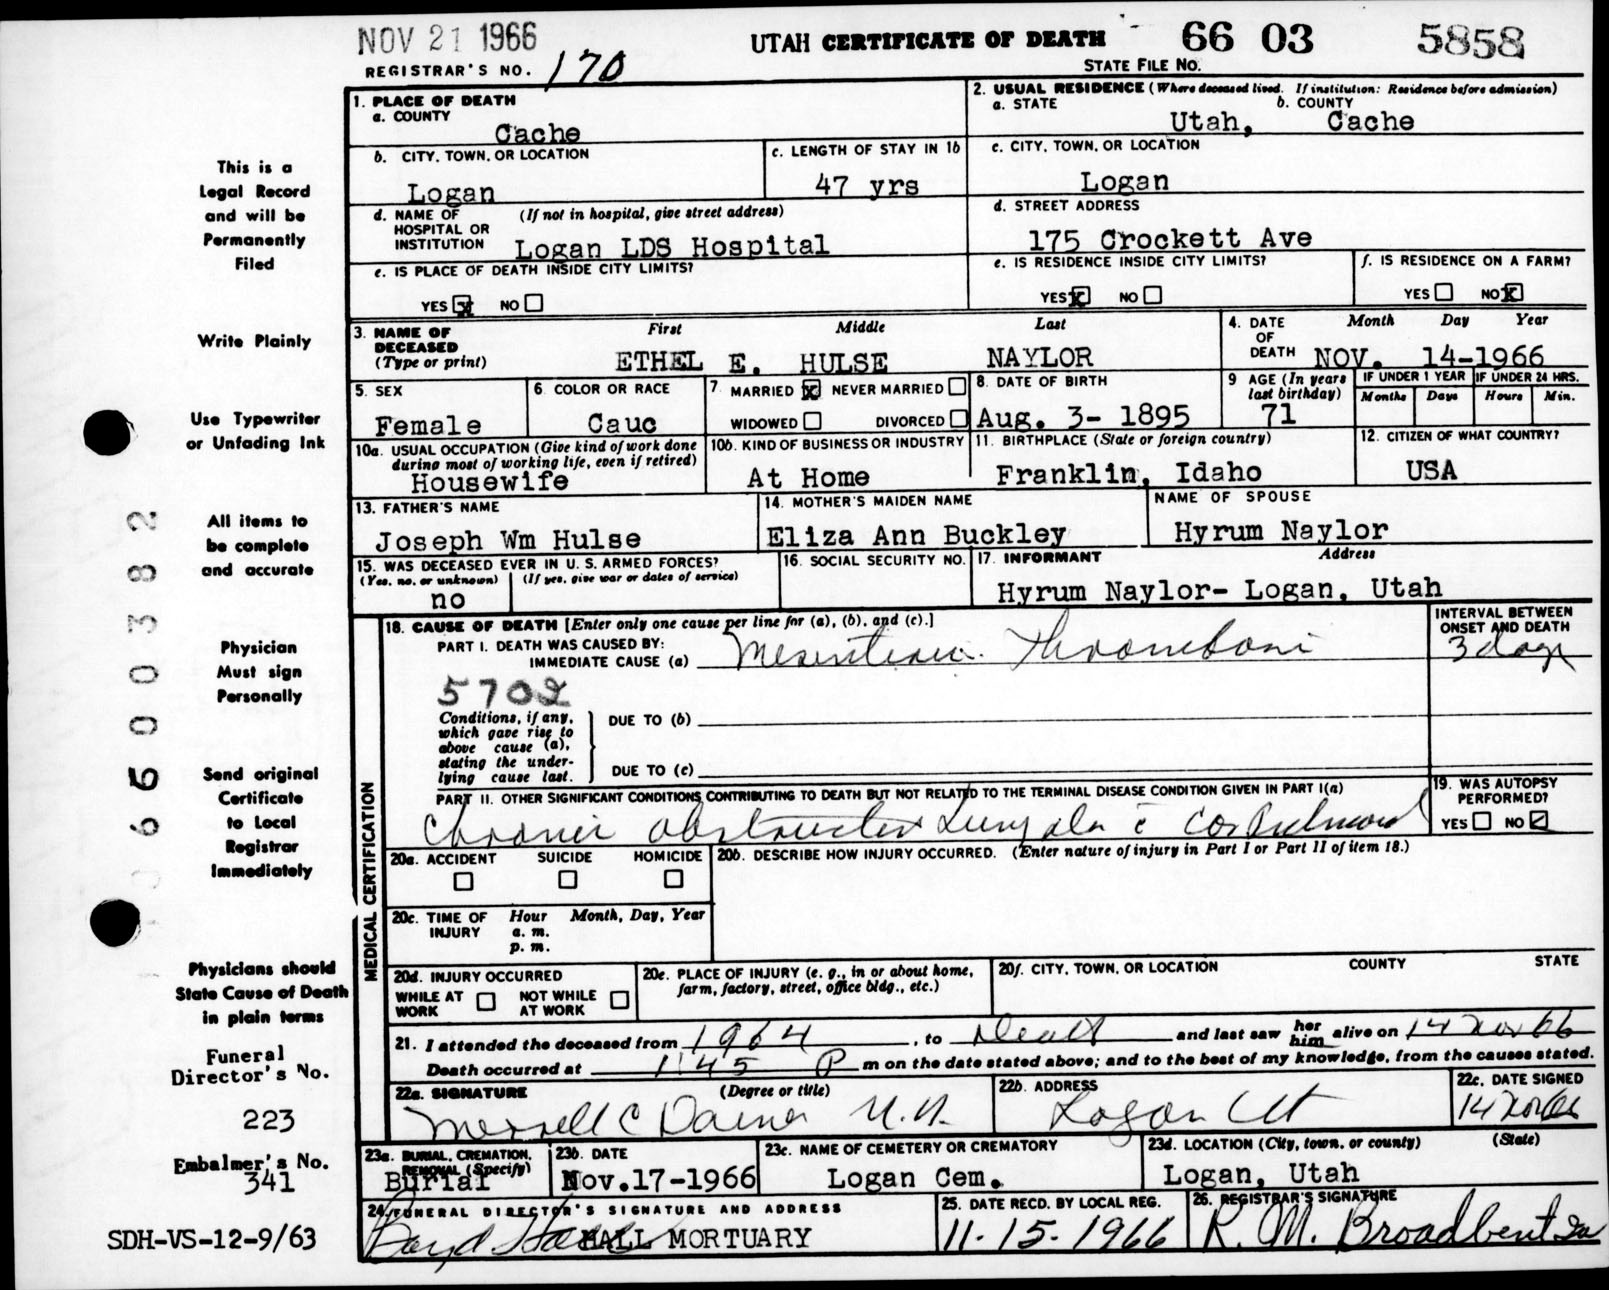 NOV 21 1966
UTAH CERTIFICATE OF DEATH 66 03 5858
REGISTRAR'S NO. 170
STATE FILE NO.
This is a
Legal Record
and will be
Permanently
Filed
Write Plainly
Use Typewriter
or Unfading Ink
All items to
be complete
and accurate
Physician
Must sign
Personally
Send original
Certificate
to Local
Registrar
Immediately
Physicians should
State Cause of Death
in plain terms
Funeral
Director's No.
223
Embalmer's No.
341
SDH-VS-12-9/63
6600382
1. PLACE OF DEATH
a. COUNTY
Cache
2. USUAL RESIDENCE (Where deceased lived. If institution: Residence before admission)
a. STATE b. COUNTY
Utah, Cache
b. CITY, TOWN, OR LOCATION
Logan
c. LENGTH OF STAY IN 1b
47 yrs
c. CITY, TOWN, OR LOCATION
Logan
d. NAME OF (If not in hospital, give street address)
HOSPITAL OR
INSTITUTION Logan LDS Hospital
d. STREET ADDRESS
175 Crockett Ave
e. IS PLACE OF DEATH INSIDE CITY LIMITS?
YES x NO
e. IS RESIDENCE INSIDE CITY LIMITS?
YES x NO
f. IS RESIDENCE ON A FARM?
YES NO x
3. NAME OF First Middle Last
DECEASED
(Type or print) ETHEL E. HULSE NAYLOR
4. DATE Month Day Year
OF
DEATH NOV. 14-1966
5. SEX
Female
6. COLOR OR RACE
Cauc
7. MARRIED x NEVER MARRIED
WIDOWED DIVORCED
8. DATE OF BIRTH
Aug. 3- 1895
9 AGE (In years
last birthday)
71
IF UNDER 1 YEAR IF UNDER 24 HRS.
Months Days Hours Min.
10a. USUAL OCCUPATION (Give kind of work done
during most of working life, even if retired)
Housewife
10b. KIND OF BUSINESS OR INDUSTRY
At Home
11. BIRTHPLACE (State or foreign country)
Franklin, Idaho
12. CITIZEN OF WHAT COUNTRY?
USA
13. FATHER'S NAME
Joseph Wm Hulse
14. MOTHER'S MAIDEN NAME
Eliza Ann Buckley
NAME OF SPOUSE
Hyrum Naylor
15. WAS DECEASED EVER IN U. S. ARMED FORCES?
(Yes, no, or unknown) (If yes, give war or dates of service)
no
16. SOCIAL SECURITY NO.
17. INFORMANT Address
Hyrum Naylor- Logan, Utah
MEDICAL CERTIFICATION
18. CAUSE OF DEATH [Enter only one cause per line for (a), (b), and (c).]
INTERVAL BETWEEN
ONSET AND DEATH
PART I. DEATH WAS CAUSED BY:
IMMEDIATE CAUSE (a) 3 days
5702
Conditions, if any,
which gave rise to
above cause (a),
stating the under-
lying cause last.
DUE TO (b)
DUE TO (c)
PART II. OTHER SIGNIFICANT CONDITIONS CONTRIBUTING TO DEATH BUT NOT RELATED TO THE TERMINAL DISEASE CONDITION GIVEN IN PART I(a)
Chronic obstructive Lung
19. WAS AUTOPSY
PERFORMED?
YES NO ✓
20a. ACCIDENT SUICIDE HOMICIDE
20b. DESCRIBE HOW INJURY OCCURRED. (Enter nature of injury in Part I or Part II of item 18.)
20c. TIME OF Hour Month, Day, Year
INJURY a. m.
p. m.
20d. INJURY OCCURRED
WHILE AT NOT WHILE
WORK AT WORK
20e. PLACE OF INJURY (e. g., in or about home,
farm, factory, street, office bldg., etc.)
20f. CITY, TOWN, OR LOCATION COUNTY STATE
21. I attended the deceased from 1964, to Death and last saw her him alive on 14 Nov 66
Death occurred at 1:45 P m on the date stated above; and to the best of my knowledge, from the causes stated.
22a. SIGNATURE (Degree or title)
Merrell C Daines M.D.
22b. ADDRESS
Logan Ut
22c. DATE SIGNED
14 Nov 66
23a. BURIAL, CREMATION,
REMOVAL (Specify)
Burial
23b. DATE
Nov.17-1966
23c. NAME OF CEMETERY OR CREMATORY
Logan Cem.
23d. LOCATION (City, town, or county) (State)
Logan, Utah
24. FUNERAL DIRECTOR'S SIGNATURE AND ADDRESS
HALL MORTUARY
25. DATE RECD. BY LOCAL REG.
11-15-1966
26. REGISTRAR'S SIGNATURE
R. M. Broadbent